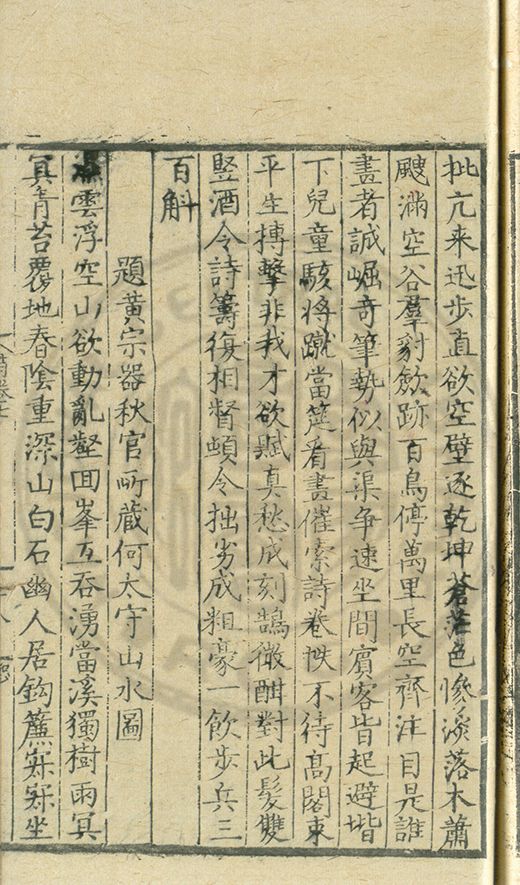 批亢来迅步直欲空壁逐乾坤蒼茫色慘淡落木蕭
颼滿空谷羣豺歛跡百鳥停萬里長空齊注目是誰
畫者誠崛奇筆勢似與渠争速坐間賓客皆起避堦
下兒童駭将蹴當筵看畫催索詩卷帙不待高閣束
平生摶擊非我才欲賦真愁成刻鵠微酣對此髮雙
竪酒令詩籌復相督頓令拙劣成粗豪一飲步兵三
百斛
題黄宗器秋官所蔵何太守山水圖
雲浮空山欲動亂壑囬峯互吞湧當溪獨樹雨冥
冥青苔覆地春陰重深山白石幽人居鈎簾寂寂坐